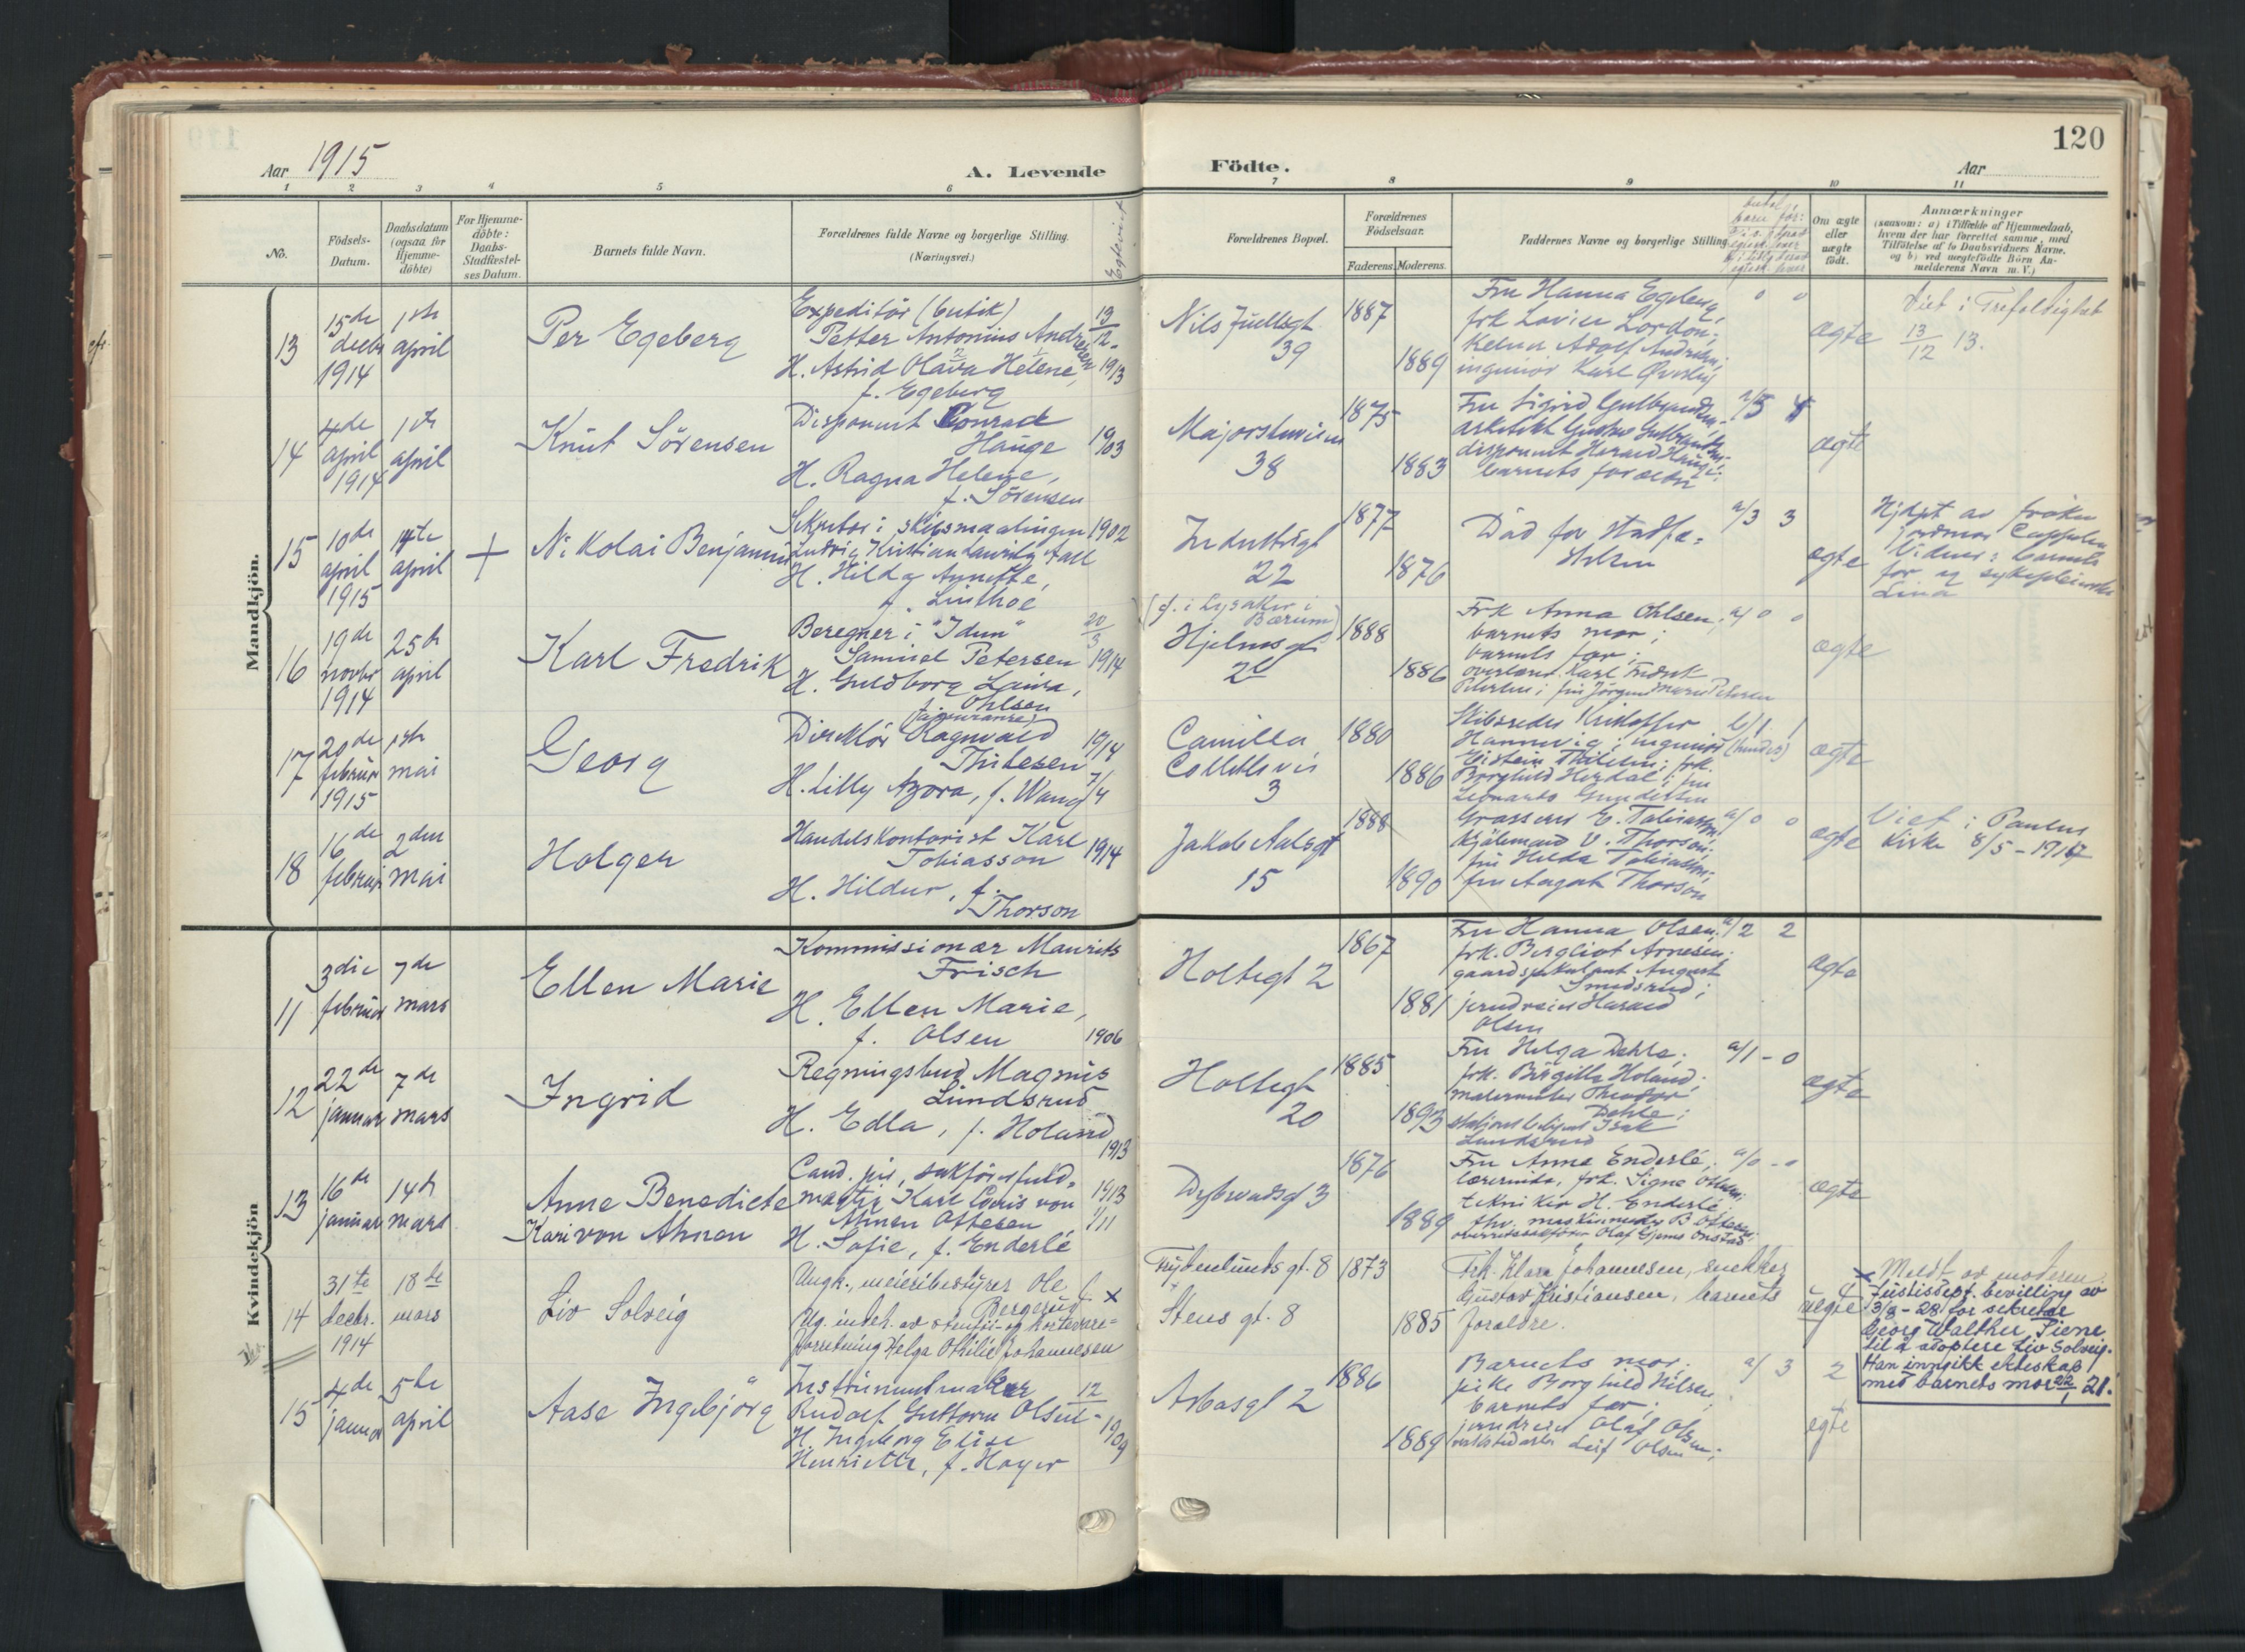 120
Aar 1915
A. Levende
Födte.
Aar
1 2 3 4 5 6 7 8 9 10 11
No.
Födsels-
Datum.
Daabsdatum
(ogsaa for
Hjemme-
döbte)
For Hjemme-
döbte:
Daabs-
Stadfæstel-
ses Datum.
Barnets fulde Navn.
Forældrenes fulde Navne og borgerlige Stilling.
(Næringsvei.)
Egteviet
Forældrenes Bopæl.
Forældrenes
Födselsaar.
Faderens. Moderens.
Faddernes Navne og borgerlige Stilling.
Om ægte
eller
uægte
födt.
Anmærkninger
(saasom: a) i Tilfælde af Hjemmedaab,
hvem der har forrettet samme, med
Tilföielse af to Daabsvidners Navne.
og b) ved uegtefödte Börn An-
melderens Navn m. V.)
Mandkjön.
13
15de
decbr
1914
1ste
april
Per Egeberg
Expeditör (butik)
Petter Antonius Andresen
H. Astrid Olava Helene,
f. Egeberg
13/12 1913
Nils Juelsgt
39
1887
1889
Fru Hanna Egeberg,
frk Lovise Lordon;
Kelner Adolf Andresen;
ingeniör Karl Øverby
0 0
ægte
Viet i Trefoldighet
13/12 13.
14
4de
april
1914
1ste
april
Knut Sörensen
Disponent Conrad
Hauge
H. Ragna Helene,
f. Sörensen
1903
Majorstuveien
38
1875
1883
Fru Sigrid Gulbrandsen,
arkitekt Gustav Gulbrandsen,
disponent Harald Hauge;
barnets forældre
a/5
ægte
15
10de
april
1915
14te
april
Nikolai Benjamin
Sekretær i skibsmaalingen
Ludvig Kristian Lauritz Aall
H. Hilda Annette,
f. Linthoe
1902
Industrigt
22
1877
1876
Död før stadfæ=
stelsen
a/3 3
ægte
Hjdpt av fröken
jordmor Cappelen
Vidner: barnets
far og sykepleierske
Lina
16
19de
novbr
1914
25de
april
Karl Fredrik
Beregner i "Idun"
Samuel Petersen
H. Guldborg Laura,
f. Ohlsen
20/3 1914
(f. i Lysaker i
Bærum)
Hjelmsgt
2c
1888
1886
Frk Anna Ohlsen;
barnets mor;
barnets far;
overlærer Karl Fredrik
Petersen; fru Jörgine Marie Petersen
a/0 0
ægte
17
20de
februar
1915
1ste
mai
Georg
Direktör (assurance) Ragnvald
Thitesen
H. Lilly Azora, f. Wang
1914
7/4
Camilla
Colletts vei
3
1880
1886
Skibsreder Kristoffer
Hannevig; ingeniör
Eistein Thitesen; frk.
Borghild Herdal; fru
Leonarda Gundersen
b/1 1
ægte
18
16de
februar
2den
mai
Holger
Handelskontorist Karl
Tobiasson
H. Hildur, f.
Thorson
1914
Jakob Aalsgt
15
1888
1890
Grosserer E. Tobiasson;
kjöbmand V. Thorson;
fru Hilda Tobiasson;
fru Aagot Thorson
a/0 0
ægte
Viet i Paulus
Kirke 8/5 - 1914
Kvindekjön
11
3die
februar
7de
mars
Ellen Marie
Kommissionær Maurits
Frisch
H. Ellen Marie,
f. Olsen
1906
Holtegt 2
1867
1881
Fru Hanna Olsen,
frk. Bergliot Arnesen;
gaardspekulant August
Smedsrud;
jerndreier Harald
Olsen
a/2 2
ægte
12
22de
januar
7de
mars
Ingrid
Regningsbud Magnus
Lundsrud
H. Edla, f. Holand
1913
Holtegt
20
1885
1893
Fru Helga Dehle;
frk. Birgitte Holand;
malermester Theodor
Dehle;
stationsbetjent Isak
Lundsrud
a/1 - 0
ægte
13
16de
januar
14de
mars
Anne Benedicte
Kari von Ahnen
Cand. jur, sakförerfuld=
mægtig Karl Louis von
Ahnen Ottesen
H. Sofie, f. Enderlé
1913
1/11
Dybwadsgt 3
1876
1889
Fru Anna Enderlé,
lærerinde, frk. Signe Ottesen;
tekniker H. Enderlé,
fhv. maskinmester B. Ottesen,
overretssakförer Olaf Gjems Onstad
a/0 - 0
ægte
14
31te
decbr.
1914
18de
mars
Liv Solveig
Ungk., meieribestyrer Ole
Bergerud
Ug. indeh. av stentöi- og kortevare=
forretning Helga Othilie Johannesen
x
Frydenlunds gt. 8
Stens gt. 8
1873
1885
Frk. Klara Johannesen, snekker
Gustav Kristiansen, barnets
forældre.
uegte
x Meldt av moderen.
Justisdept. bevilling av
3/8 - 28 for sekretær
Georg Walther Piene
til å adoptere Liv Solveig.
Han inngikk ekteskap
med barnets mor 22/1 21.
15
4de
januar
5te
april
Aase Ingebjörg
Instrumentmaker
Rudolf Guttorm Olsen
H. Ingeborg Elise
Henriette, f. Høyer
12/ 1909
Asbøsgt 2
1886
1889
Barnets mor;
pike Borghild Nilsen;
barnets far;
jerndreier Olaf Olsen;
verkstedarb. Leif Olsen;
a/3 2
egte